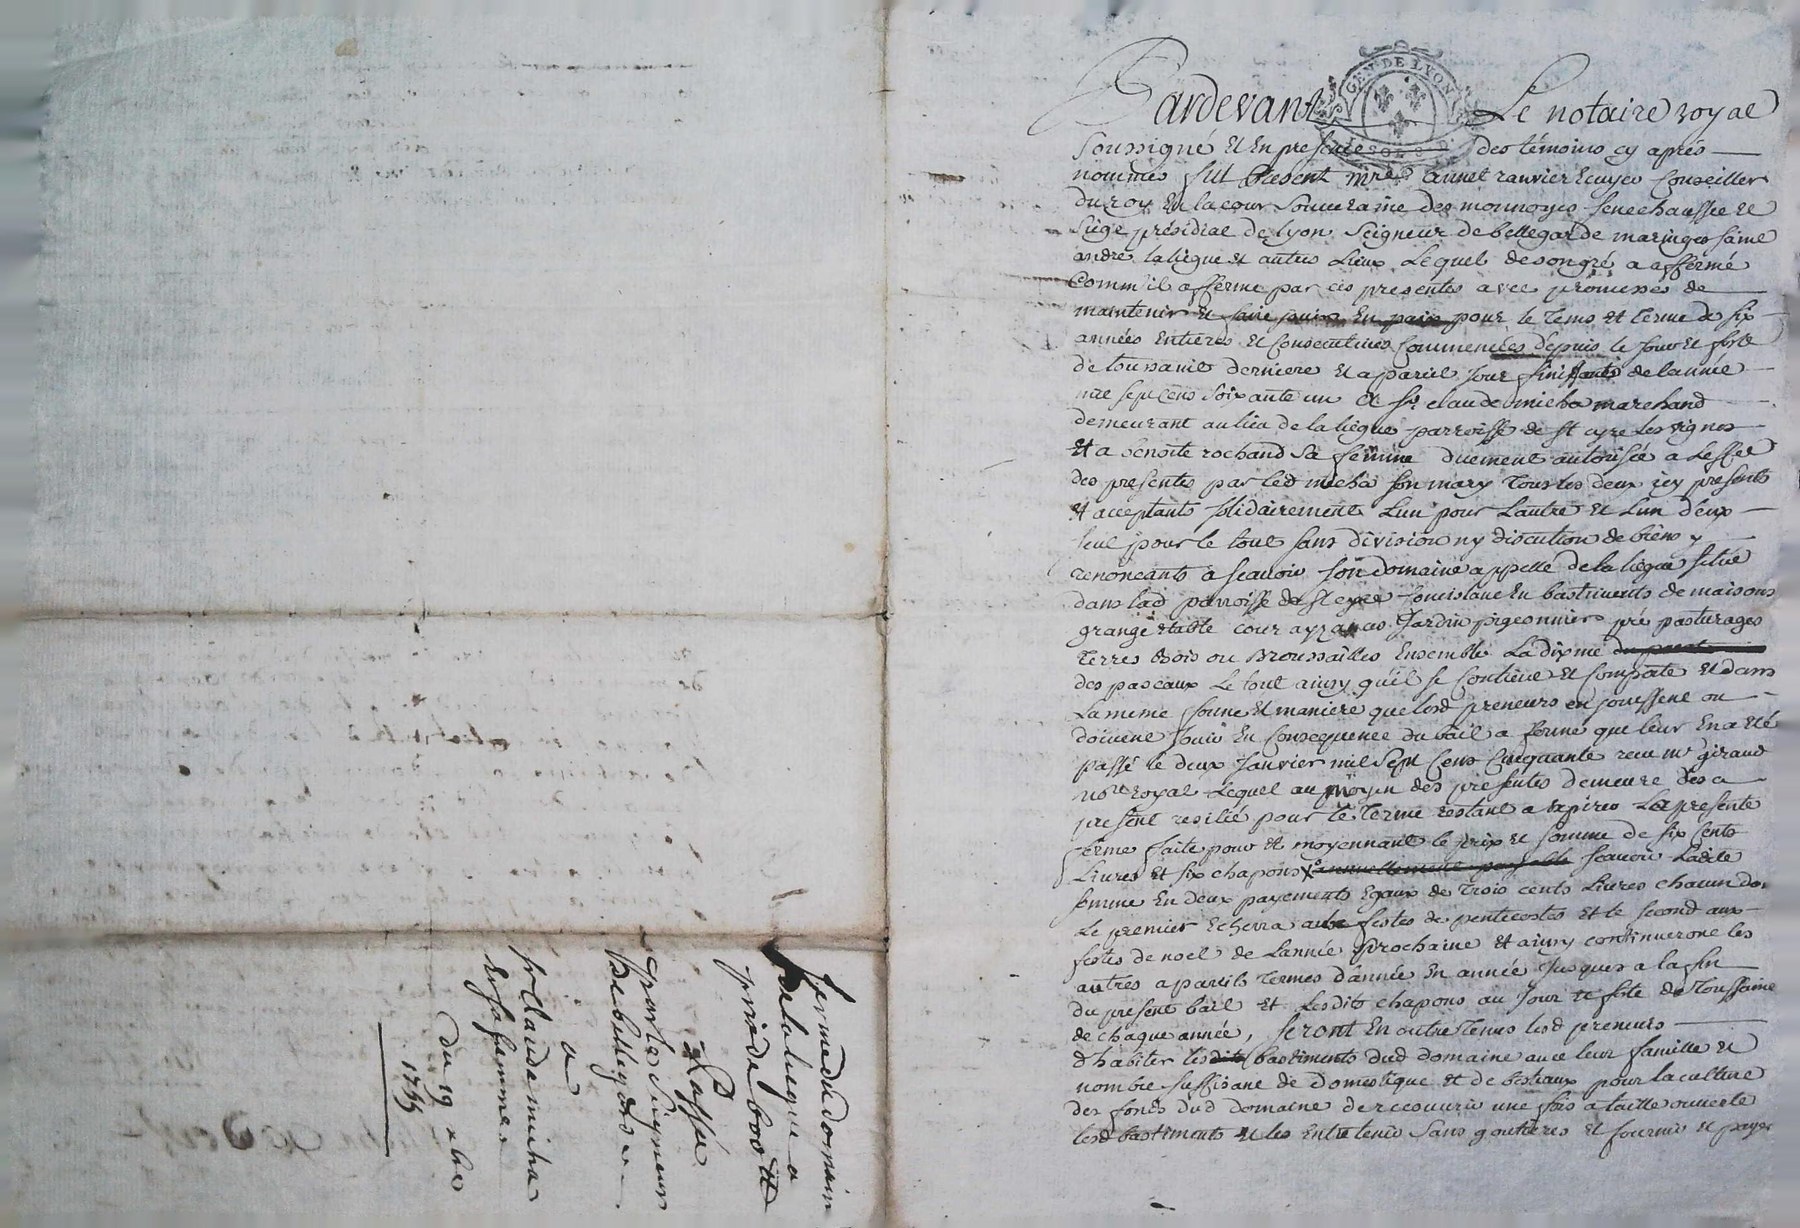 Pardevant Le notaire royal
GEN. DE LYON
SOLS
Soussigné Et En presence des témoins cy après
nommés fut Present Mre annet ranvier Ecuyer Conseiller
du roy En la cour Souveraine des monnoyes senechaussée et
Siège présidial de Lyon Seigneur de bellegarde maringes saint
andré laliegue et autres Lieux Lequel de son gré a affermé
Comm'il afferme par ces presentes avec promesses de
maintenir et faire jouir En paix pour le Tems et terme de six
années Entieres et Consecutives Commencées depuis le Jour et feste
de toussaint derniere et a pareil Jour finissants de l'année
mil sept cens Soixante un a Sr claude micha marchand
demeurant au lieu de laliegue parroisse de St cyre Les vignes
Et a benoite rochand Sa femme duement autorisée a L'effet
des presentes par led micha son mary Tous les deux icy presents
et acceptants solidairement L'un pour L'autre et L'un d'eux
seul pour le tout sans division ny discution de biens y
renonçants a scavoir son domaine appellé de la liegue situé
dans lad parroisse de St cyre Consistant En bastiments de maisons
grange Etable cour ayzances Jardin pigeonnier pré pasturages
Terres Bois ou Broussailles Ensemble La dixme
des paseaux Le tout ainsy qu'il se Contient et Comporte et dans
La meme forme et maniere que lesd preneurs en jouissent ou
doivent Jouir En Consequence du bail a ferme que leur En a eté
passé le deux Janvier mil Sept Cens Cinquante receu Me giraud
nore royal Lequel au moyen des presentes demeure des a
present resilié pour le Terme restant a Expirer La presente
ferme faite pour et moyennant le prix et somme de six cents
Livres et six chapons annuellement payable scavoir Ladite
somme En deux payements Egaux de Trois cents Livres chacun dont
Le premier Echerra aux festes de pentecostes et le second aux
festes de noel de L'année prochaine et ainsy continueront les
autres a pareils Termes d'année En année Jusques a la fin
du present bail et Lesdits chapons au Jour et feste de Toussaint
de chaque année, seront En outre Tenus lesd preneurs
d'habiter les dits bastiments dud domaine avec leur famille et
nombre suffisant de domestique et de bestiaux pour la culture
des fonds dud domaine de recouvrir une fois a taille ouverte
lesd bastiments et les Entretenir Sans goutieres et fournir et payer
ferme du domaine
de la liegue a
prix de 600 tt
Passée
par le Seigneur
De bellegarde
a
sr Claude micha
Et sa femme
du 19 xbre
1755